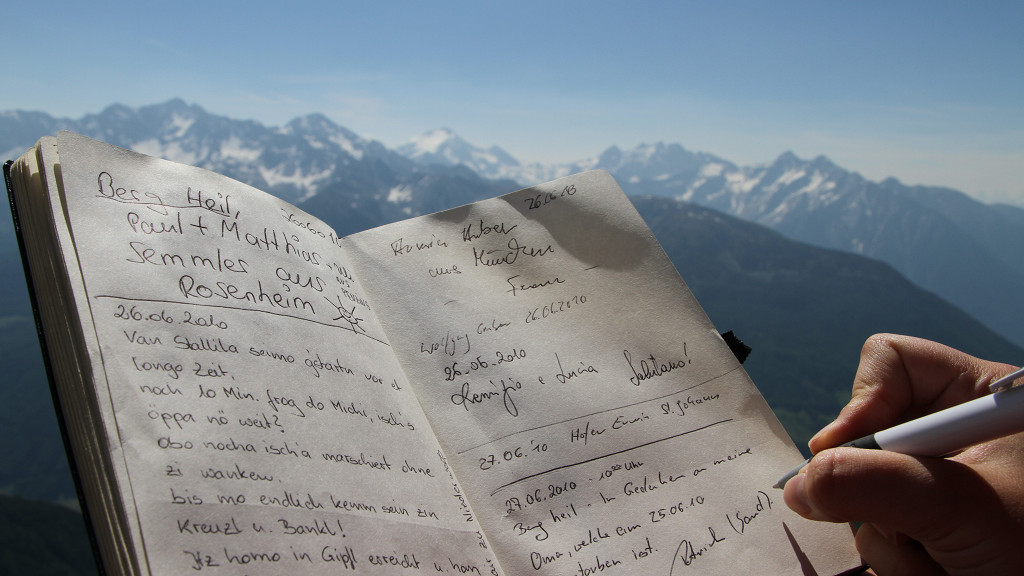 Berg Heil,
Paul + Matthias
Semmler aus
Rosenheim
26.06.2010
Van Stallila senmo gstartn vor a
longa Zeit.
noch 10 Min. frog do Michi, isch's
öppa nö weit?
obo nocha isch a marschiert ohne
zi wankn.
bis mo endlich kemm sein zin
Kreuzl u. Bankl!
Itz homo in Gipfl erreicht u. hom
26.06.10
Huber
aus München
26.06.2010
26.06.2010
Remigio e Lucia Salutano!
27.06.'10 Hofer Erwin St. Johann
27.06.2010 · 10⁰⁰ Uhr
Berg heil · In Gedenken an meine
Oma, welche am 25.06.10
storben ist. Patrick